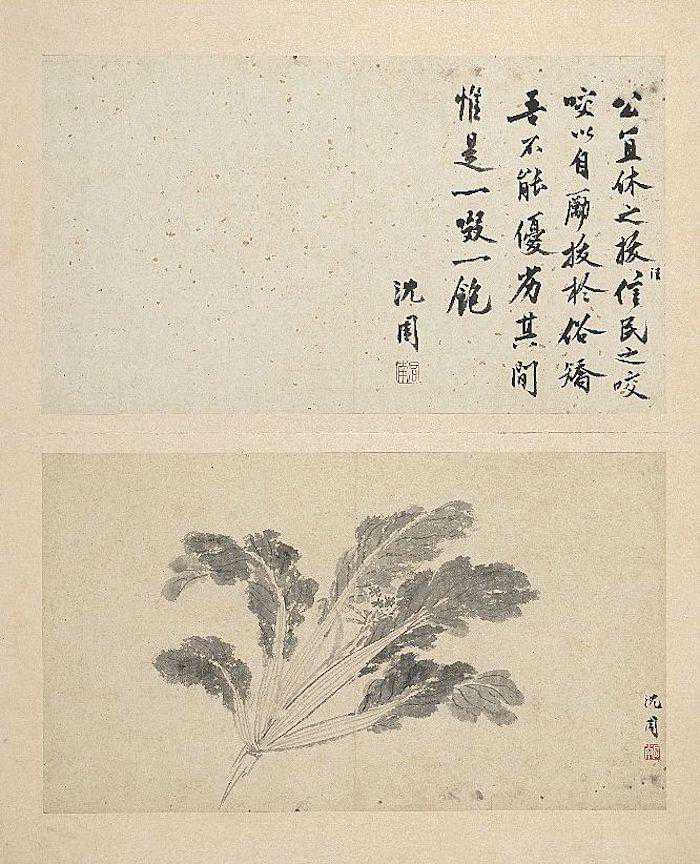 公宜休之拔汪信民之咬
咬以自勵拔於俗矯
吾不能優劣其間
惟是一啜一飽
沈周
沈周